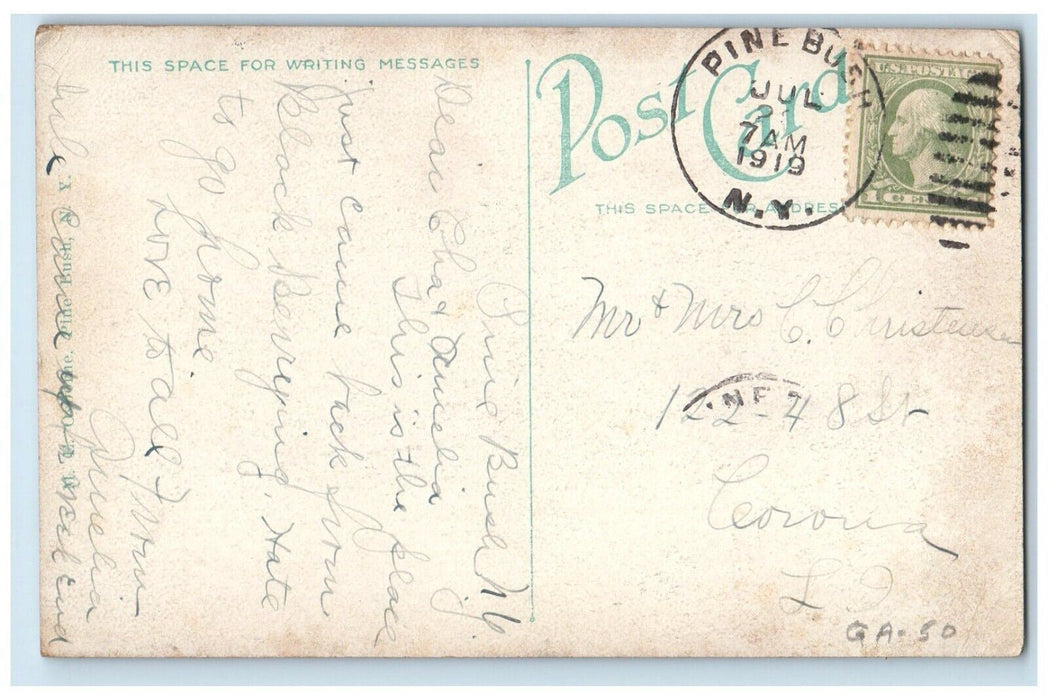 THIS SPACE FOR WRITING MESSAGES
Post Card
THIS SPACE FOR ADDRESS
PINE BUSH
JUL
21
7 AM
1919
N.Y.
Pine Bush N.Y.
Dear Cha & Amelia
This is the place
just came back from
Black Berrying. Hate
to go home
Love to all from
Amelia
Mr & Mrs C. Christensen
122-48 St
Corona
L I
GA-50
Pine Bush, N.